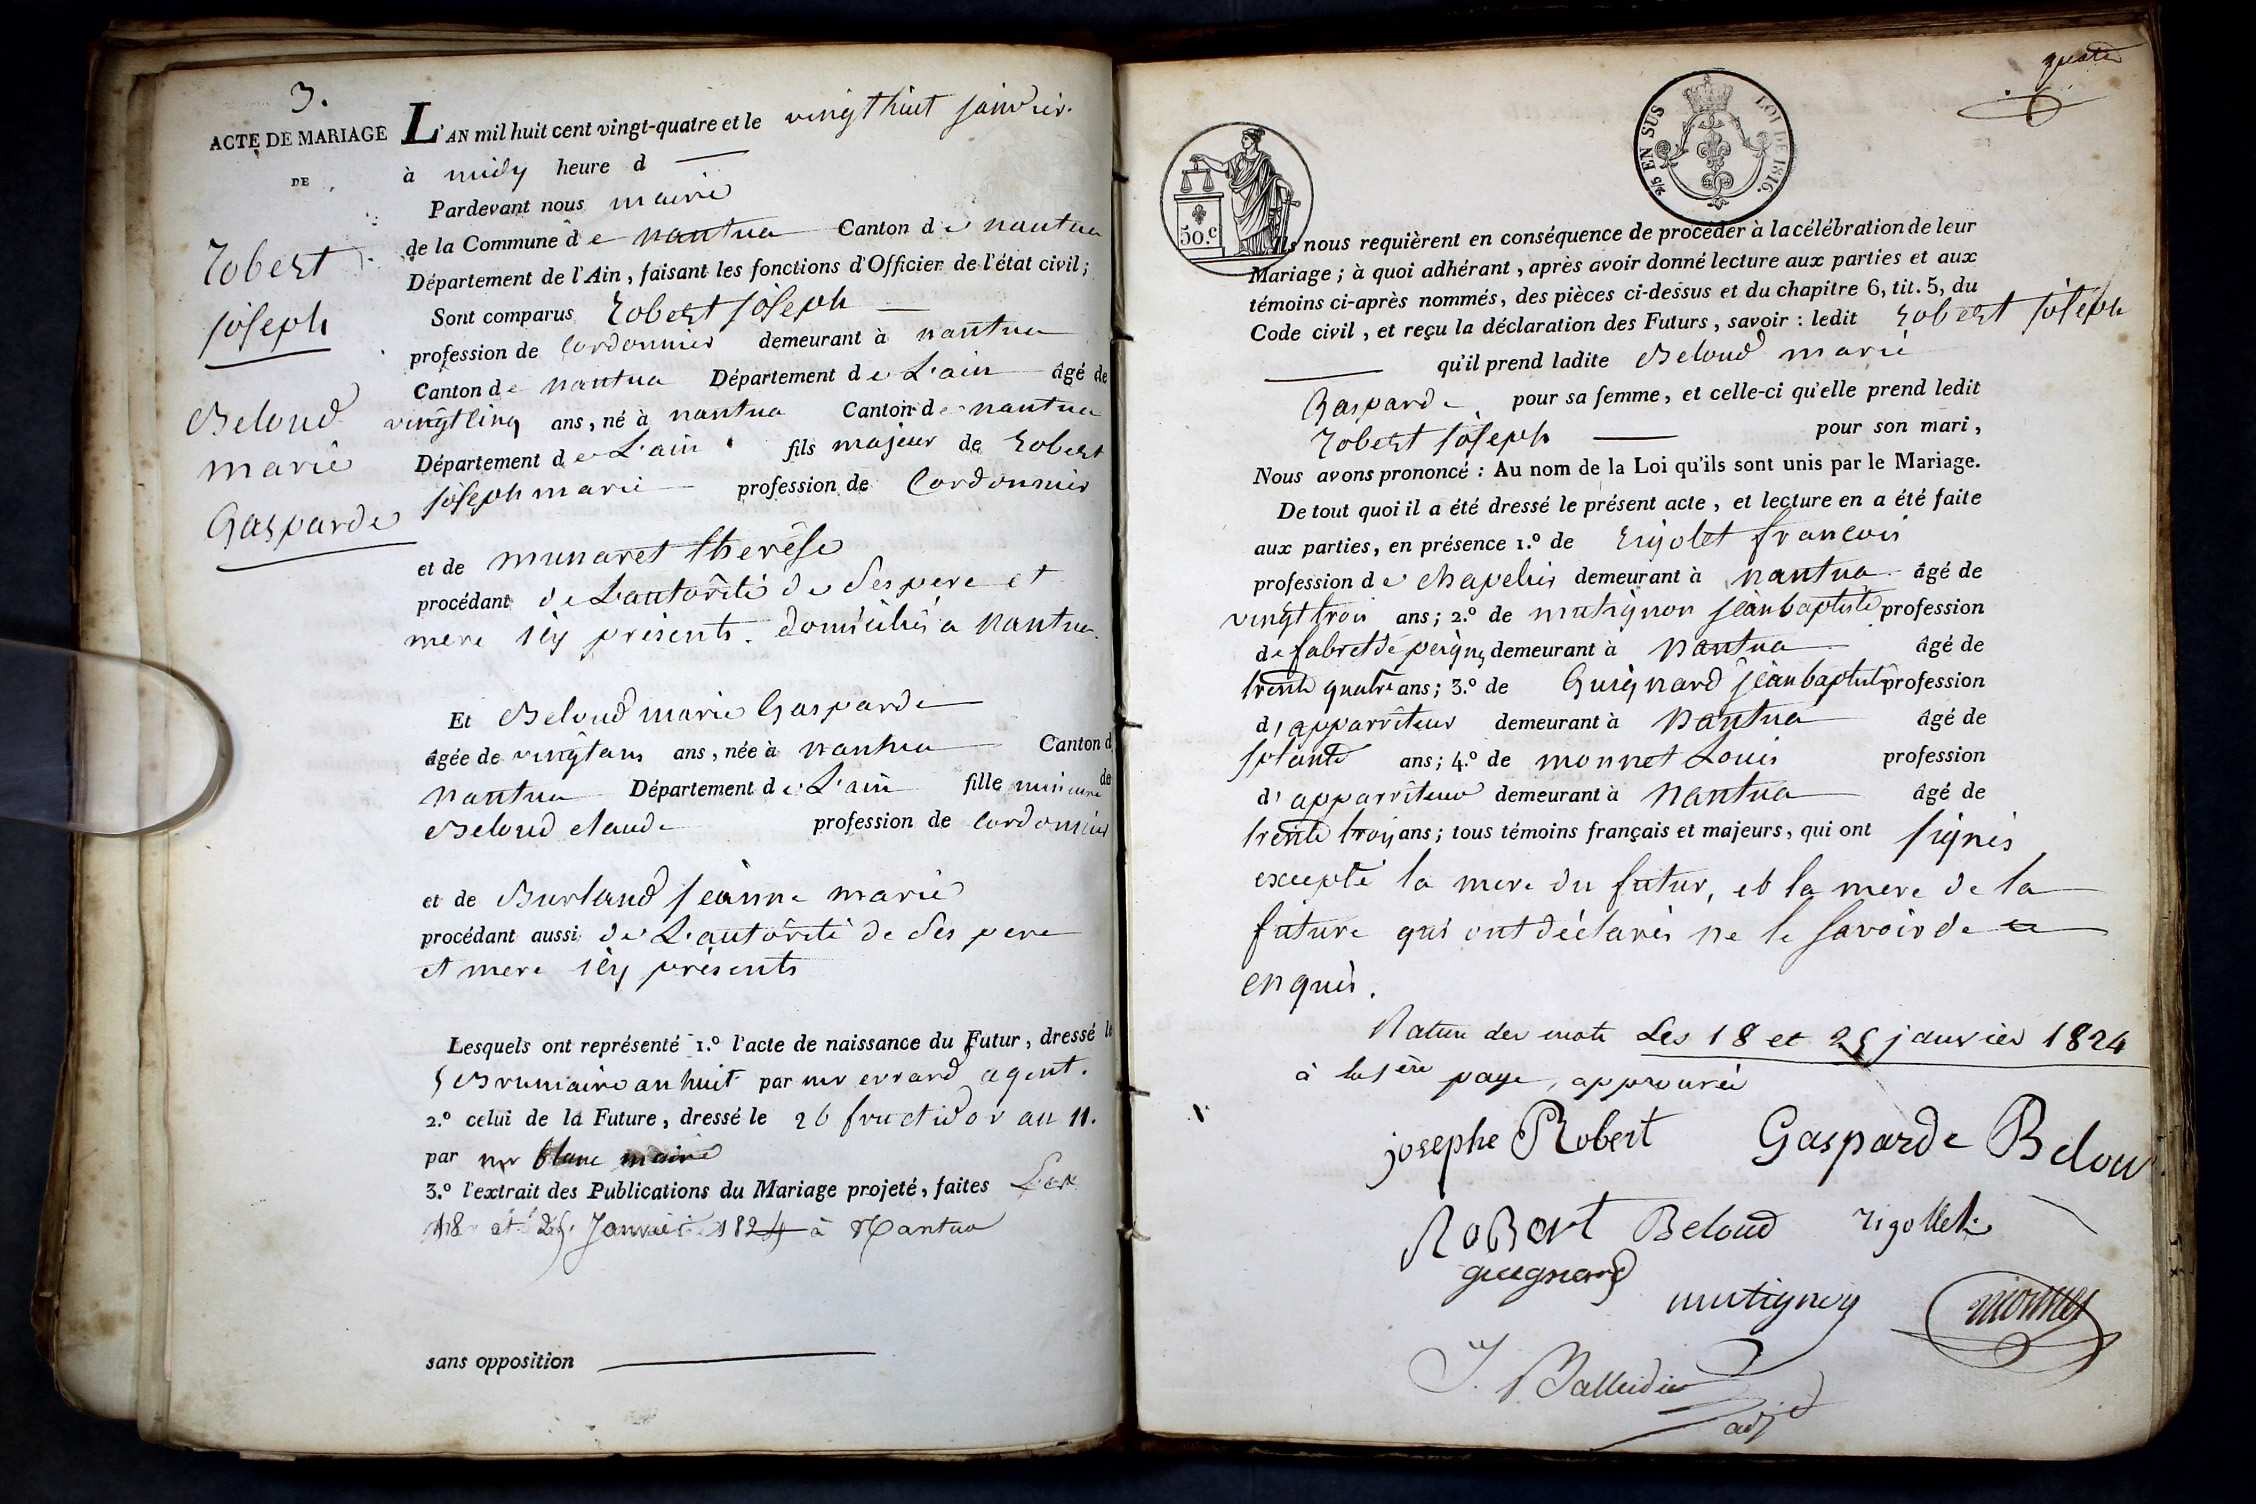 3.
ACTE DE MARIAGE
DE
Robert
joseph
Beloud
marie
Gasparde
L'AN mil huit cent vingt-quatre et le vingt huit janvier.
à midy heure d
Pardevant nous maire
de la Commune de nantua Canton de nantua
Département de l'Ain, faisant les fonctions d'Officier de l'état civil;
Sont comparus Robert joseph
profession de Cordonnier demeurant à nantua
Canton de nantua Département de L'ain âgé de
vingt cinq ans, né à nantua Canton de nantua
Département de L'ain fils majeur de Robert
joseph marie profession de Cordonnier
et de munaret therèse
procédant de L'autorité de Ses pere et
mere icy présents. domiciliés a nantua.
Et Beloud marie Gasparde
âgée de vingt ans ans, née à nantua Canton d
nantua Département de L'ain fille mineure de
Beloud claude profession de Cordonnier
et de Burland jeanne marie
procédant aussi de L'autorité de Ses pere
et mere icy présents
Lesquels ont représenté 1.° l'acte de naissance du Futur, dressé le
5 Brumaire an huit par mr errard agent.
2.° celui de la Future, dressé le 26 fructidor an 11.
par mr blanc maire
3.° l'extrait des Publications du Mariage projeté, faites Les
18 et 25 Janvier 1824 à Nantua
sans opposition
quatre
2/5 EN SUS
LOI DE 1816.
50.c
Ils nous requièrent en conséquence de procéder à la célébration de leur
Mariage; à quoi adhérant, après avoir donné lecture aux parties et aux
témoins ci-après nommés, des pièces ci-dessus et du chapitre 6, tit. 5, du
Code civil, et reçu la déclaration des Futurs, savoir: ledit Robert joseph
qu'il prend ladite Beloud marie
Gasparde pour sa femme, et celle-ci qu'elle prend ledit
Robert joseph pour son mari,
Nous avons prononcé: Au nom de la Loi qu'ils sont unis par le Mariage.
De tout quoi il a été dressé le présent acte, et lecture en a été faite
aux parties, en présence 1.° de Rigolet françois
profession de chapelier demeurant à nantua âgé de
vingt trois ans; 2.° de matignon jean baptiste profession
de fabrct de peigne demeurant à nantua âgé de
trente quatre ans; 3.° de Guignard jean baptiste profession
d'apparriteur demeurant à nantua âgé de
Soixante ans; 4.° de monnet Louis profession
d'apparriteur demeurant à nantua âgé de
trente trois ans; tous témoins français et majeurs, qui ont signés
excepté la mere du futur, et la mere de la
future qui ont déclarés ne le Savoir de ce
enquis.
Rature des mots Les 18 et 25 janvier 1824
à la 1ère page, approuvée
josephe Robert Gasparde Belou
RoBert Beloud rigollet
guignard
mutignoy monnet
J. Balleidier
adj